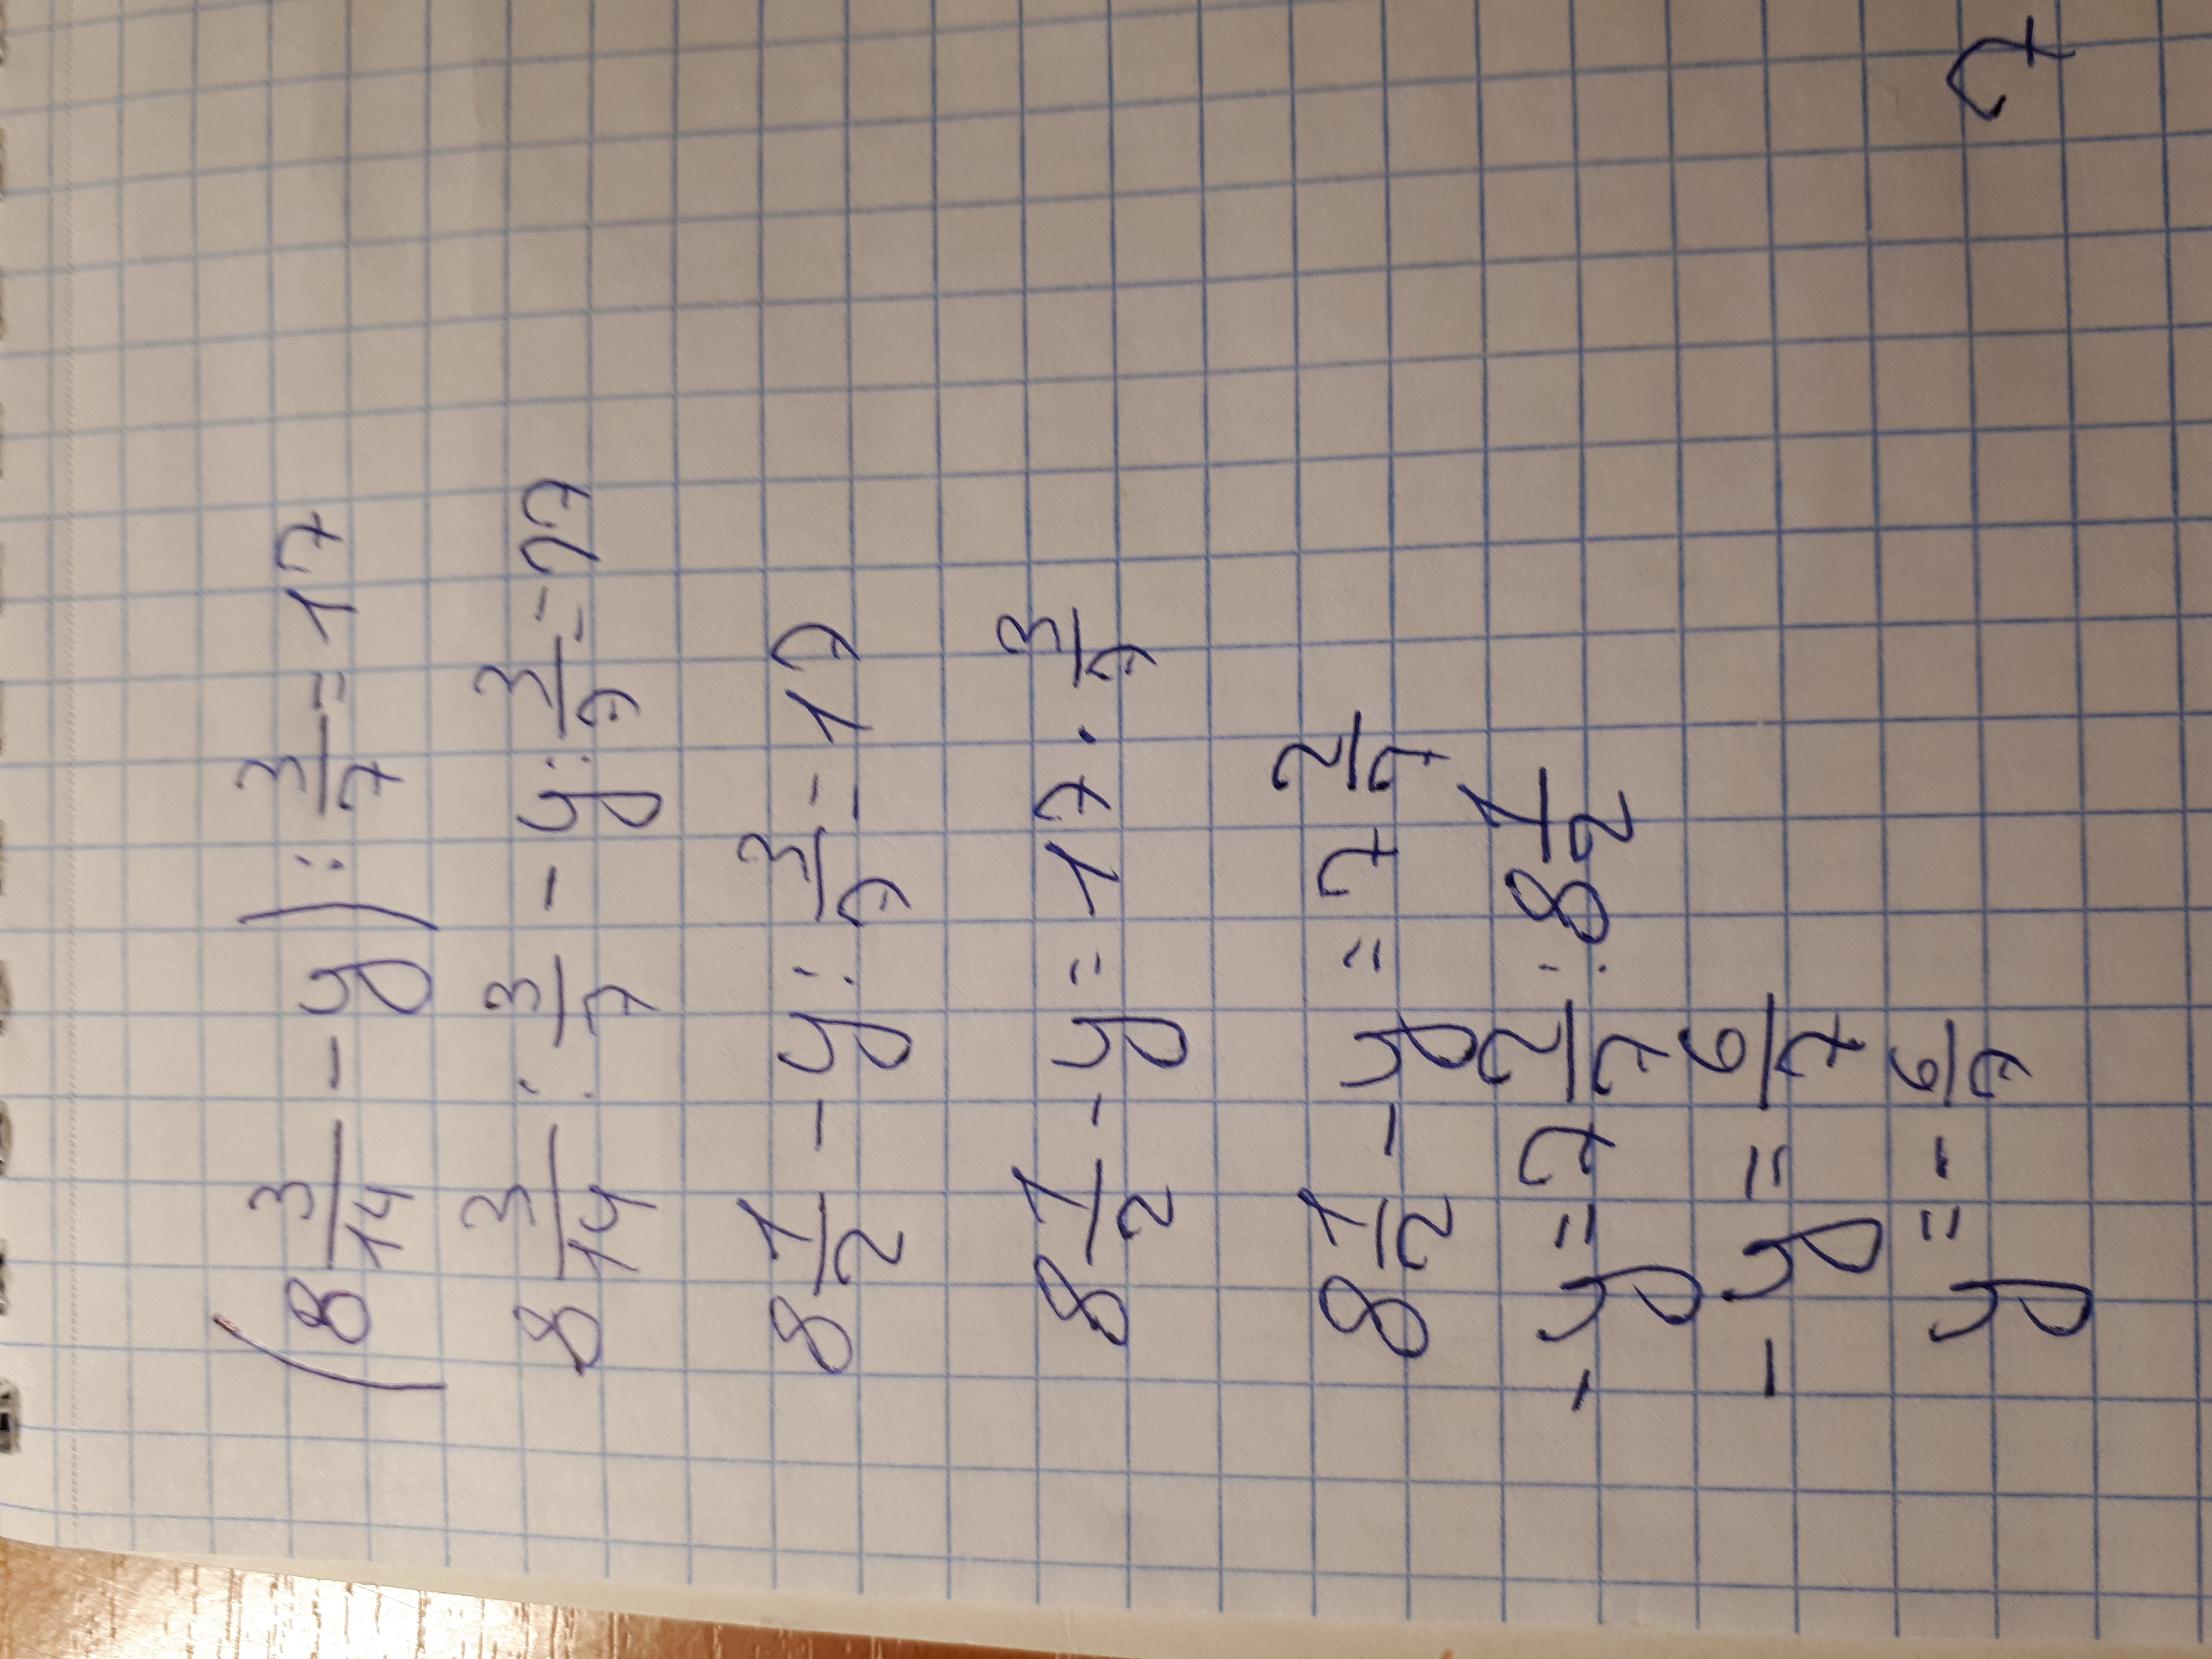 (8 3/14 - y) : 3/7 = 17
8 3/14 : 3/7 - y : 3/7 = 17
8 1/2 - y : 3/7 = 17
8 1/2 - y = 17 · 3/7
8 1/2 - y = 7 2/7
- y = 7 2/7 : 8 1/2
- y = 6/7
y = - 6/7
7